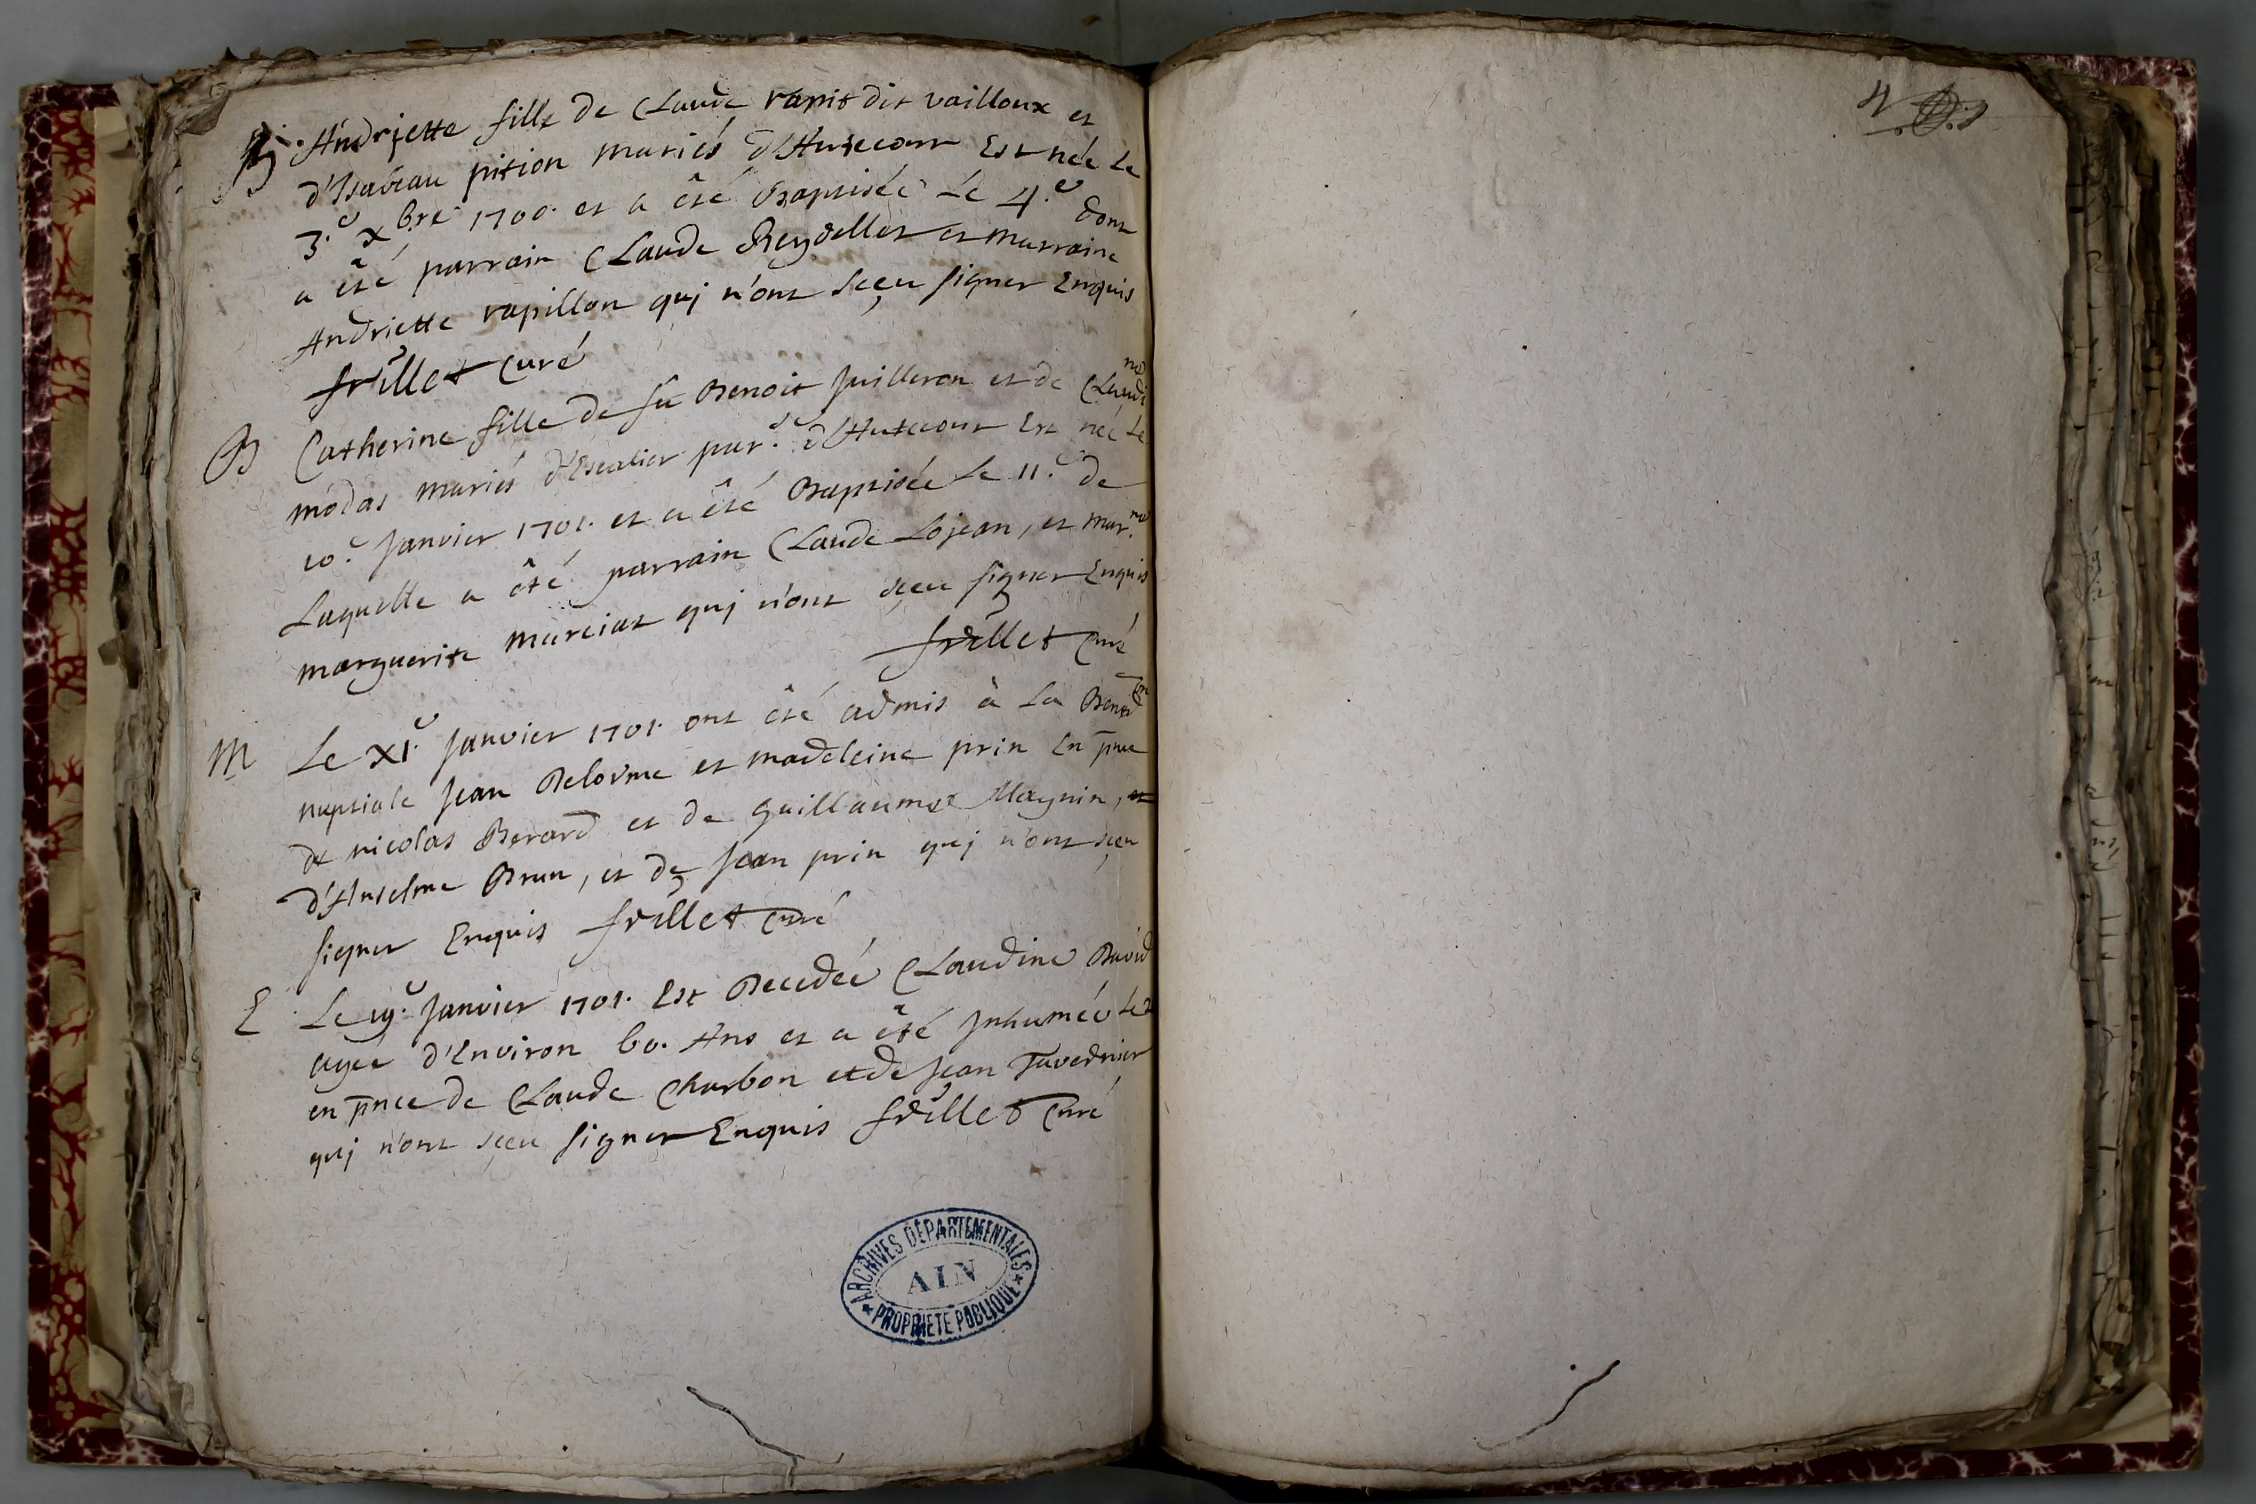 B. Andriette fille de Claude rapit dit vailloux et
d'Isabeau pition mariés d'Hutecour Est née Le
3.e xbre 1700. et a êté Baptisée Le 4.e dont
a êté parrain Claude Reydellet et marraine
Andriette rapillon quj n'ont sçeu signer Enquis
frillet Curé
B Catherine fille de fû Benoit Juilleron et de Claudi ne
modas mariés d'Escalier par.se d'Hutecour Est née Le
10.e Janvier 1701. et a êté Baptisée Le 11.e de
Laquelle a êté parrain Claude Lojean, et mar.ne
marguerite marciat quj n'ont sçeu signer Enquis
frillet Curé
M Le XI.e Janvier 1701. ont êté admis à La Bened on
nuptiale Jean Delorme et madeleine prin En pnce
de nicolas Berard et de guillaume Magnin, et
d'Anselme Brun, et de Jean prin quj n'ont sçeu
signer Enquis frillet Curé
E Le 19.e Janvier 1701. Est Decedée Claudine David
agée d'Environ 60. Ans et a êté Jnhumée Le
en pnce de Claude Charbon et de Jean Tavernier
quj n'ont sçeu signer Enquis frillet Curé
ARCHIVES DÉPARTEMENTALES
AIN
PROPRIÉTÉ PUBLIQUE
4